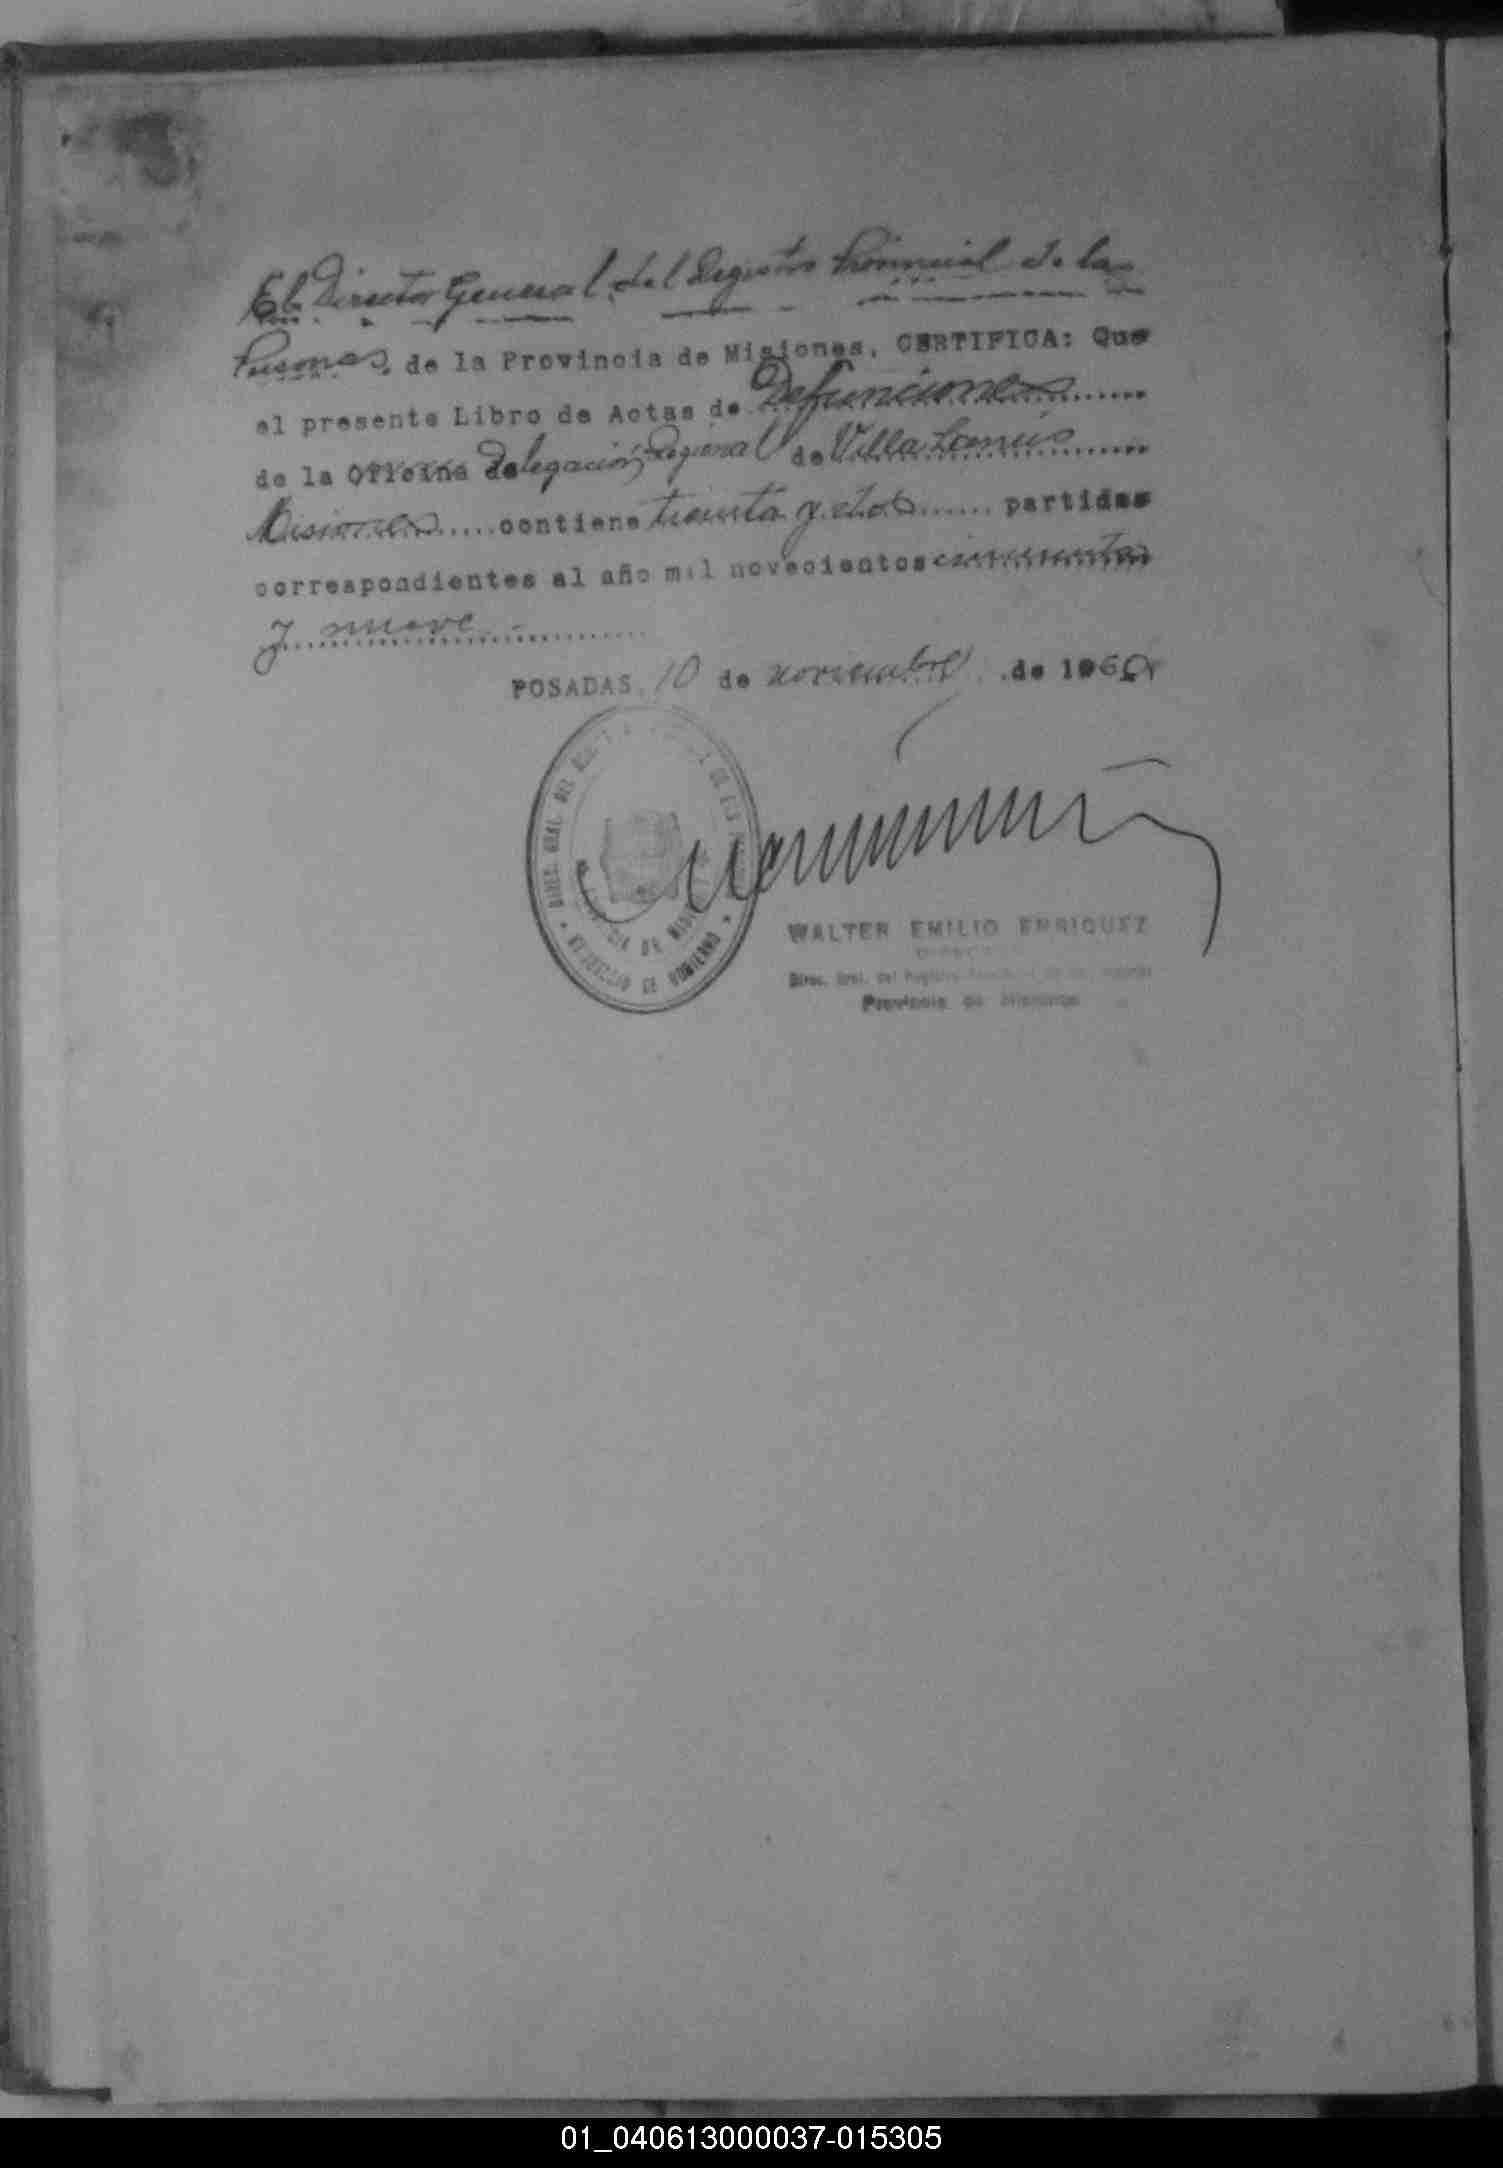 El Director General del Registro Provincial de las
Personas, de la Provincia de Misiones, CERTIFICA: Que
el presente Libro de Actas de Defunciones
de la Oficina Delegación Regional de Villa Lanús
Misiones contiene treinta y dos partidas
correspondientes al año mil novecientos cincuenta
y nueve
POSADAS, 10 de noviembre de 196
DIREC. GRAL. DEL REG.
DE LAS
DE MISIONES
DE GOBIERNO
WALTER EMILIO ENRIQUEZ
Direc. Gral. del Registro
Provincia de Misiones
01_040613000037-015305